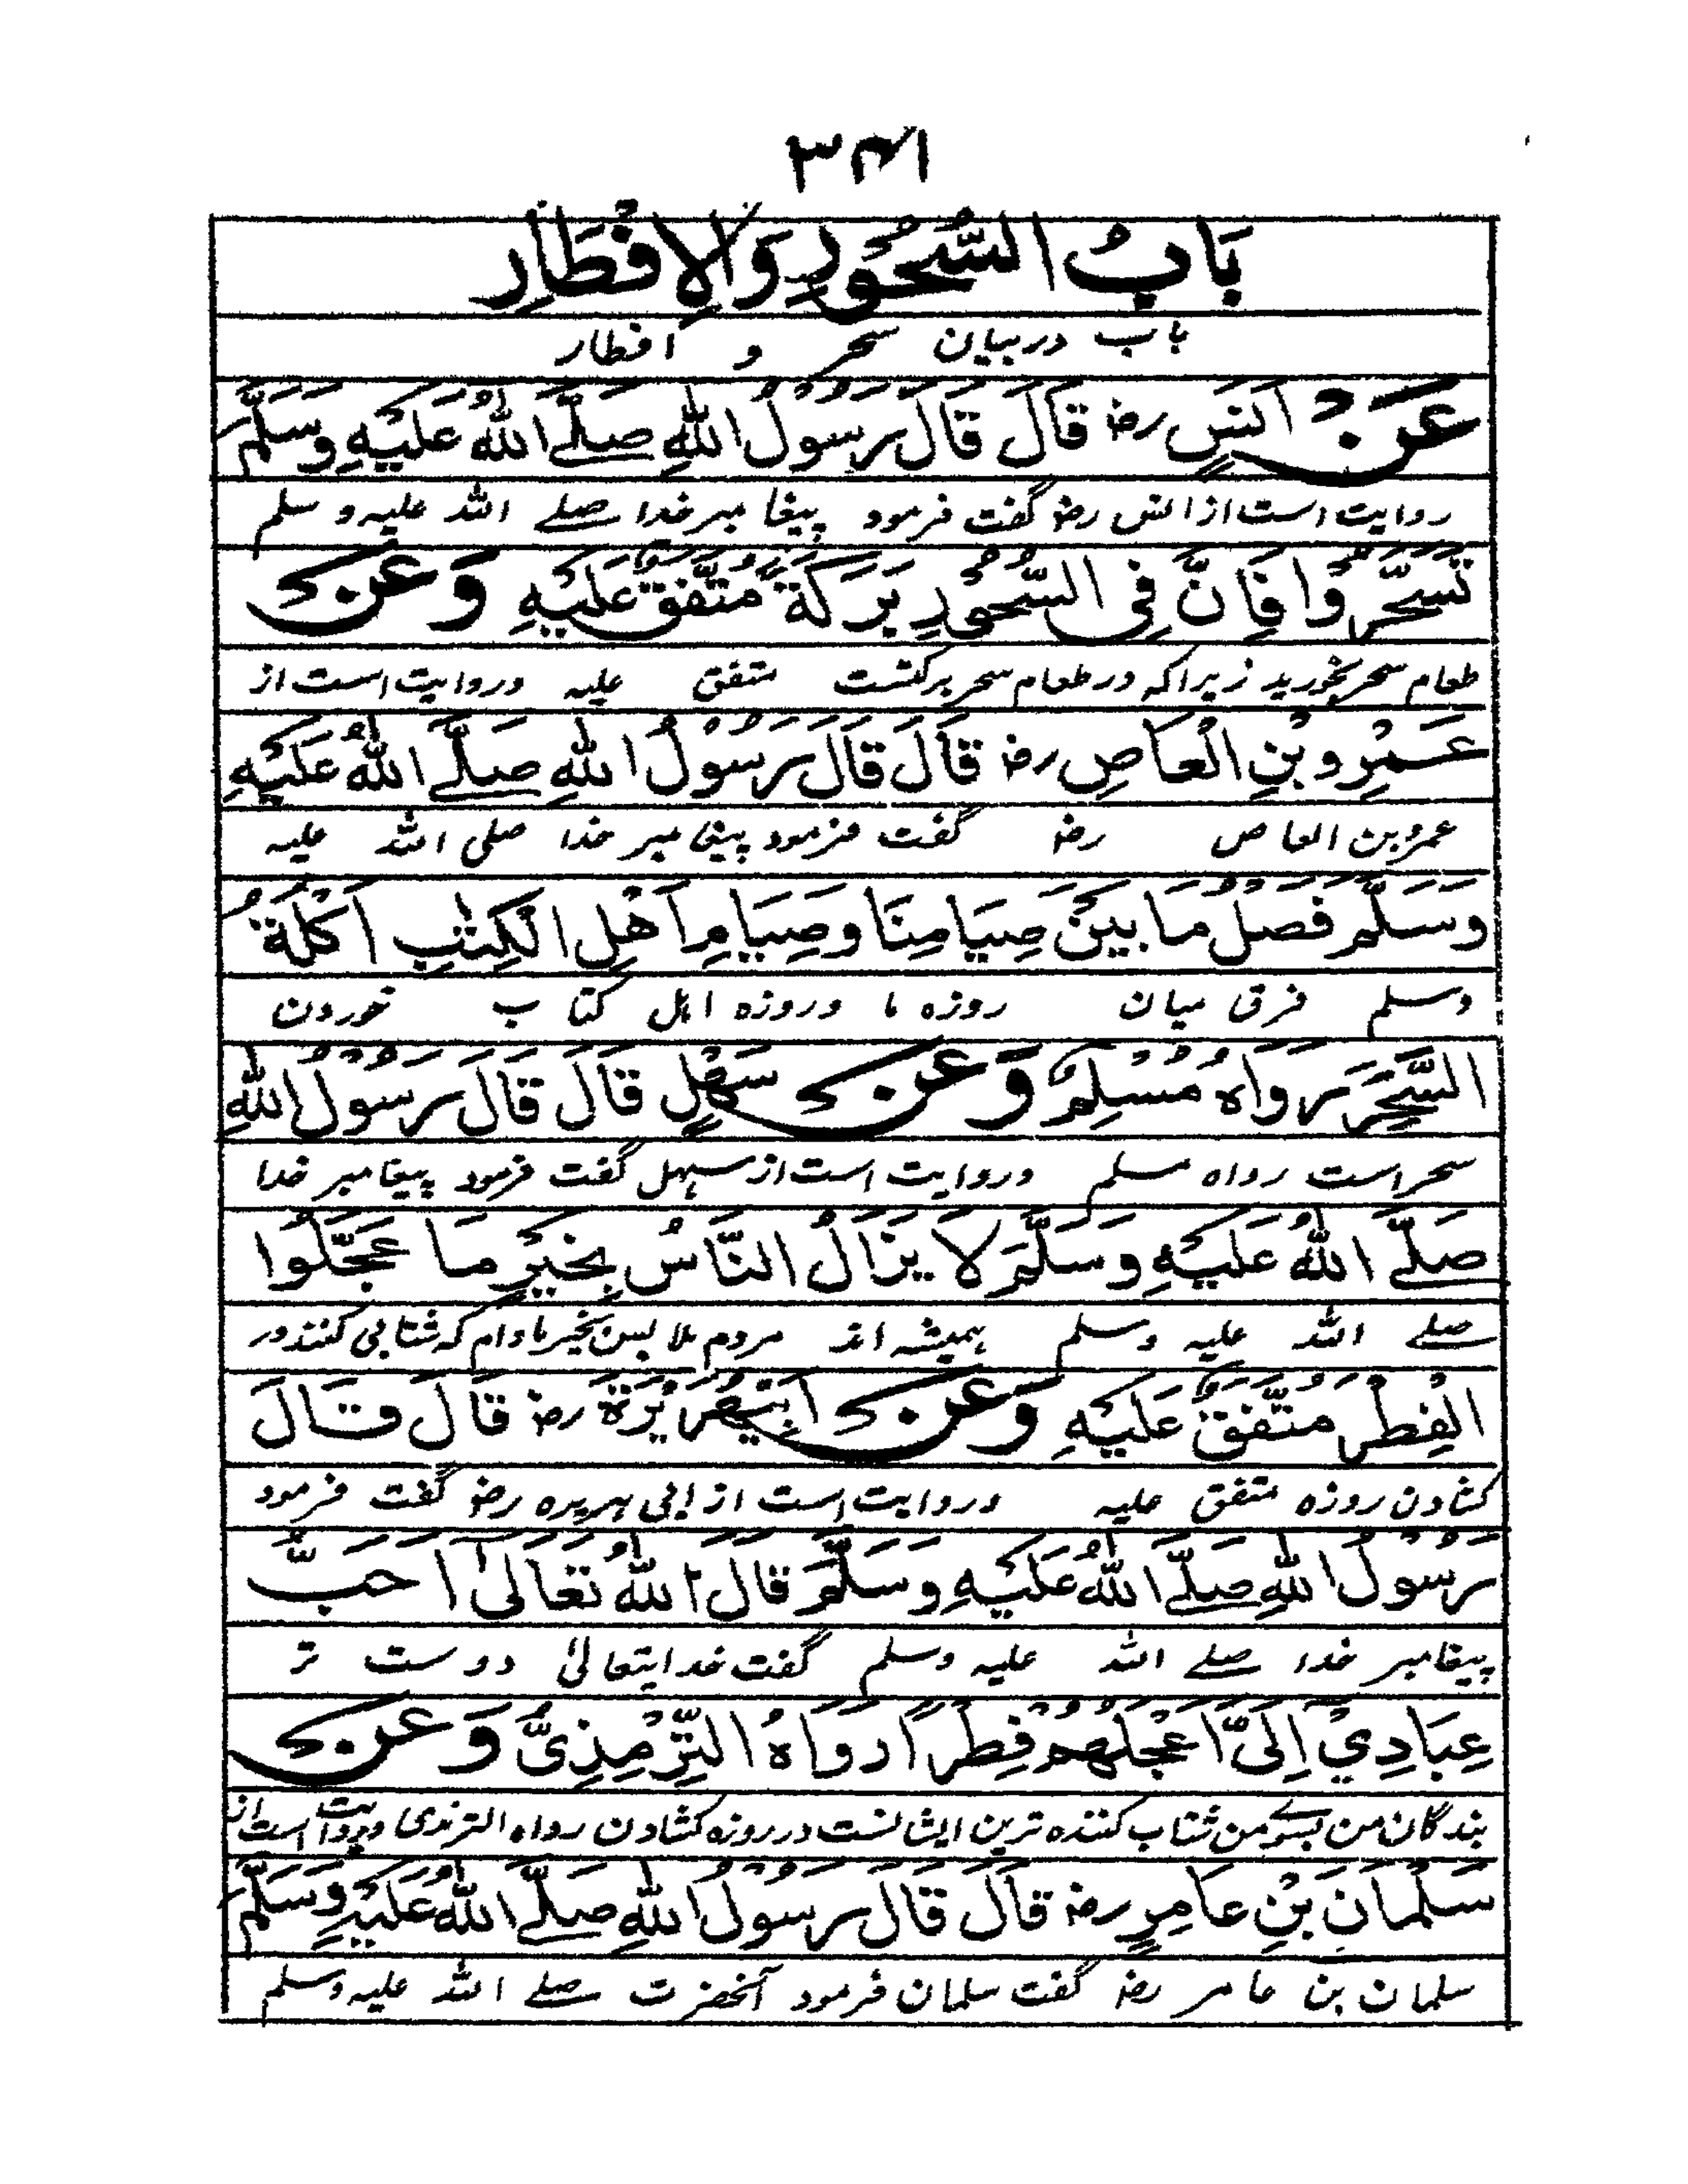 ۳۴۱
بَابُ السُّحُوْرِ وَالْاِفْطَارِ
باب دربیان سحر و افطار
عَنْ اَنَسٍ رض قَالَ قَالَ رَسُوْلُ اللّٰهِ صَلَّے اللّٰهُ عَلَيْهِ وَسَلَّمَ
روایت است از انس رض گفت فرمود پیغامبر خدا صلے اللہ علیہ و سلم
تَسَحَّرُوْا فَاِنَّ فِي السُّحُوْرِ بَرَكَةً مُتَّفَقٌ عَلَيْهِ وَعَنْ
طعام سحر بخورید زیراکه در طعام سحر برکتست متفق علیه وروایت است از
عَمْرِو بْنِ الْعَاصِ رض قَالَ قَالَ رَسُوْلُ اللّٰهِ صَلَّے اللّٰهُ عَلَيْهِ
عمروبن العاص رض گفت فرمود پیغامبر خدا صلی اللہ علیه
وَسَلَّمَ فَصْلُ مَا بَيْنَ صِيَامِنَا وَصِيَامِ اَهْلِ الْكِتٰبِ اَكْلَةُ
وسلم فرق میان روزه ما وروزه اہل کتاب خوردن
السَّحَرِ رَوَاهُ مُسْلِمٌ وَعَنْ سَهْلٍ قَالَ قَالَ رَسُوْلُ اللّٰهِ
سحر است رواه مسلم وروایت است از سہل گفت فرمود پیغامبر خدا
صَلَّے اللّٰهُ عَلَيْهِ وَسَلَّمَ لَا يَزَالُ النَّاسُ بِخَيْرٍ مَا عَجَّلُوا
صلے اللہ علیه وسلم ہمیشه اند مردم ملابس بخیر مادام که شتابی کنند در
الْفِطْرَ مُتَّفَقٌ عَلَيْهِ وَعَنْ اَبِيْ هُرَيْرَةَ رض قَالَ قَالَ
کشادن روزه متفق علیه وروایت است از ابی ہریره رض گفت فرمود
رَسُوْلُ اللّٰهِ صَلَّے اللّٰهُ عَلَيْهِ وَسَلَّمَ قَالَ اللّٰهُ تَعَالٰى اَحَبُّ
پیغامبر خدا صلے اللہ علیه وسلم گفت خدایتعالیٰ دوست تر
عِبَادِيْ اِلَيَّ اَعْجَلُهُمْ فِطْرًا رَوَاهُ التِّرْمِذِيُّ وَعَنْ
بندگان من بسوے من شتاب کننده ترین ایشانست در روزه کشادن رواه الترمذی وروایت است از
سَلْمَانَ بْنِ عَامِرٍ رض قَالَ قَالَ رَسُوْلُ اللّٰهِ صَلَّے اللّٰهُ عَلَيْهِ وَسَلَّمَ
سلمان بن عامر رض گفت سلمان فرمود آنحضرت صلے اللہ علیه وسلم